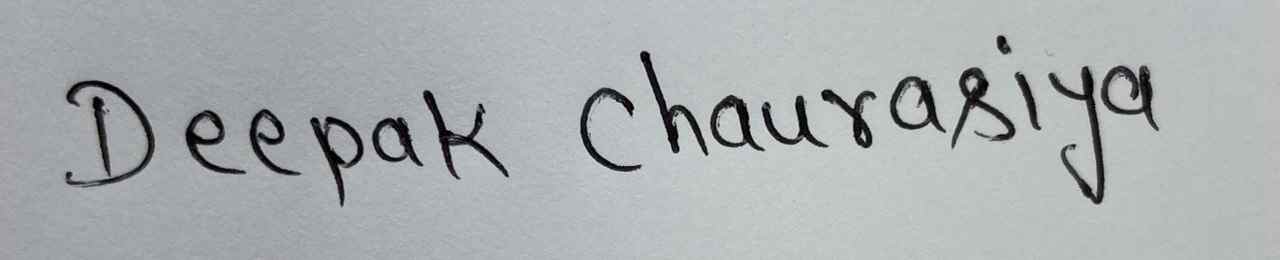 Deepak Chaurasiya